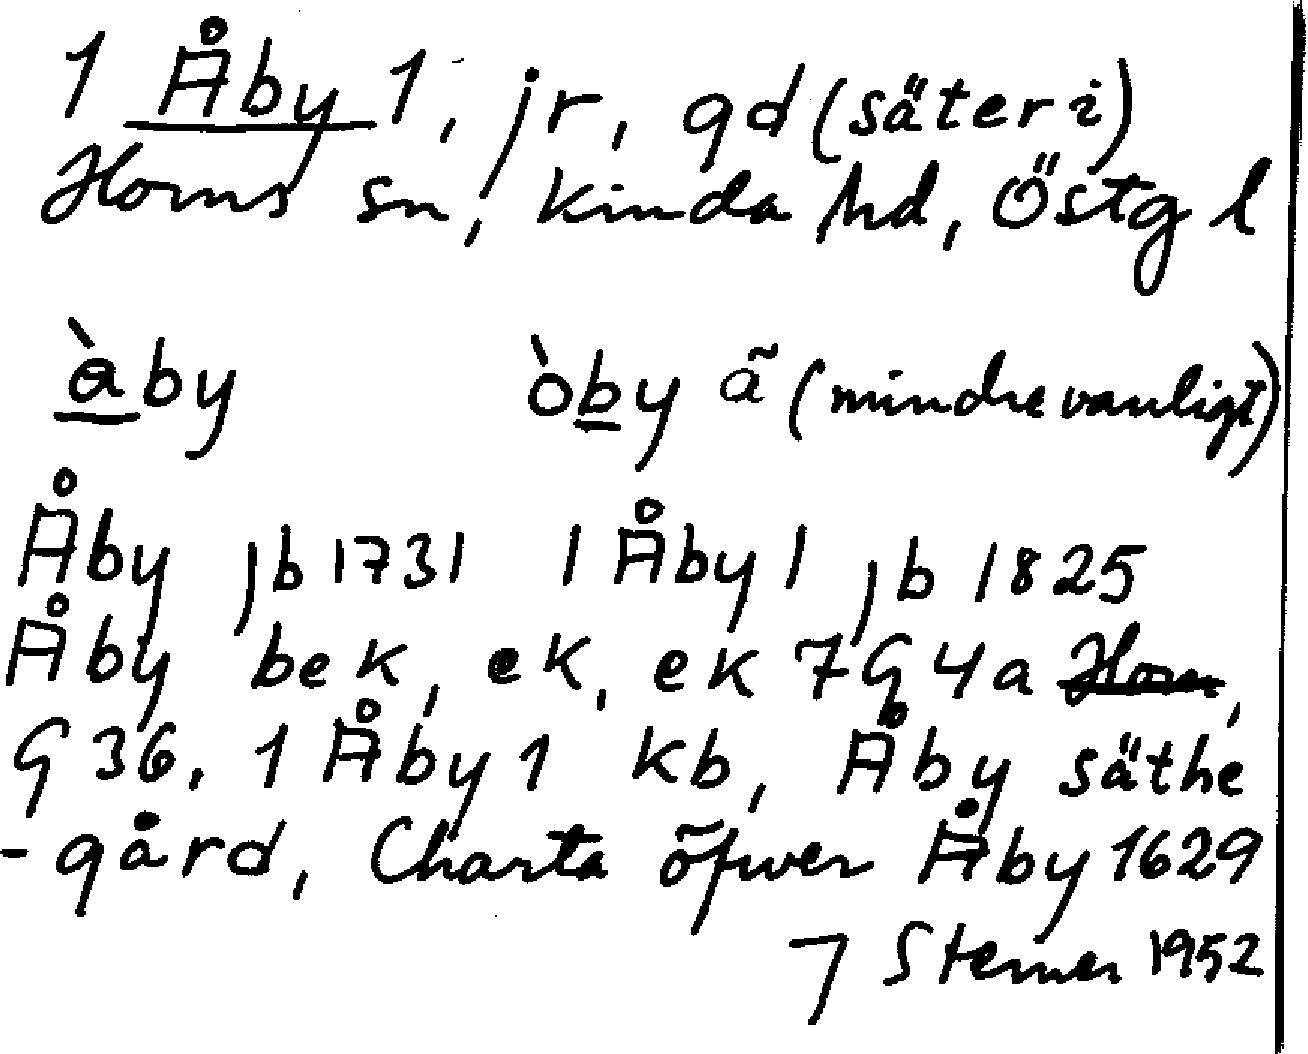 1 Åby 1, jr, gd (säteri)
Horns sn, Kinda hd, Östg l
àby òby ã (mindre vanligt)
Åby jb 1731 1 Åby 1 jb 1825
Åby bek, ek, ek 7G4a Horn,
G 36, 1 Åby 1 kb, Åby säthe
-gård, Charta öfwer Åby 1629
J Sterner 1952